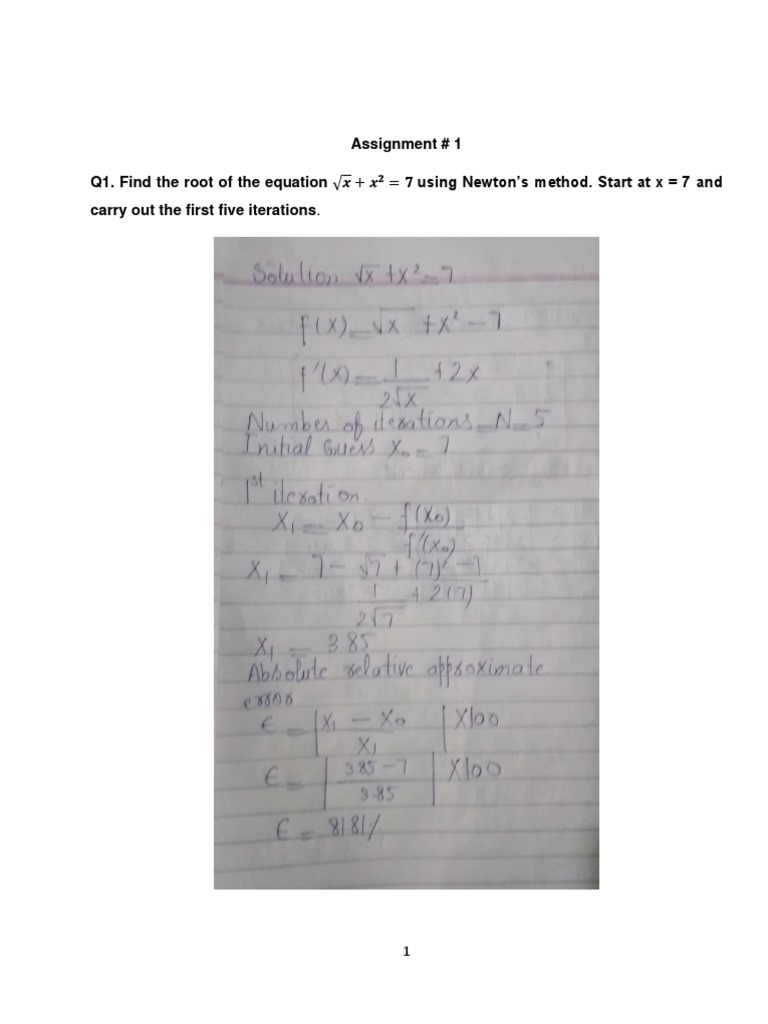 Assignment # 1
Q1. Find the root of the equation √x + x² = 7 using Newton's method. Start at x = 7 and
carry out the first five iterations.
Solution √x + x² = 7
f(x) = √x + x² - 7
f'(x) = 1/(2√x) + 2x
Number of iterations = N = 5
Initial Guess X₀ = 7
1st iteration
X₁ = X₀ - f(X₀)/f'(X₀)
X₁ = 7 - (√7 + (7)² - 7)/(1/(2√7) + 2(7))
X₁ = 3.85
Absolute relative approximate
error
ϵ = |(X₁ - X₀)/X₁| X100
ϵ = |(3.85 - 7)/3.85| X100
ϵ = 81.81%
1